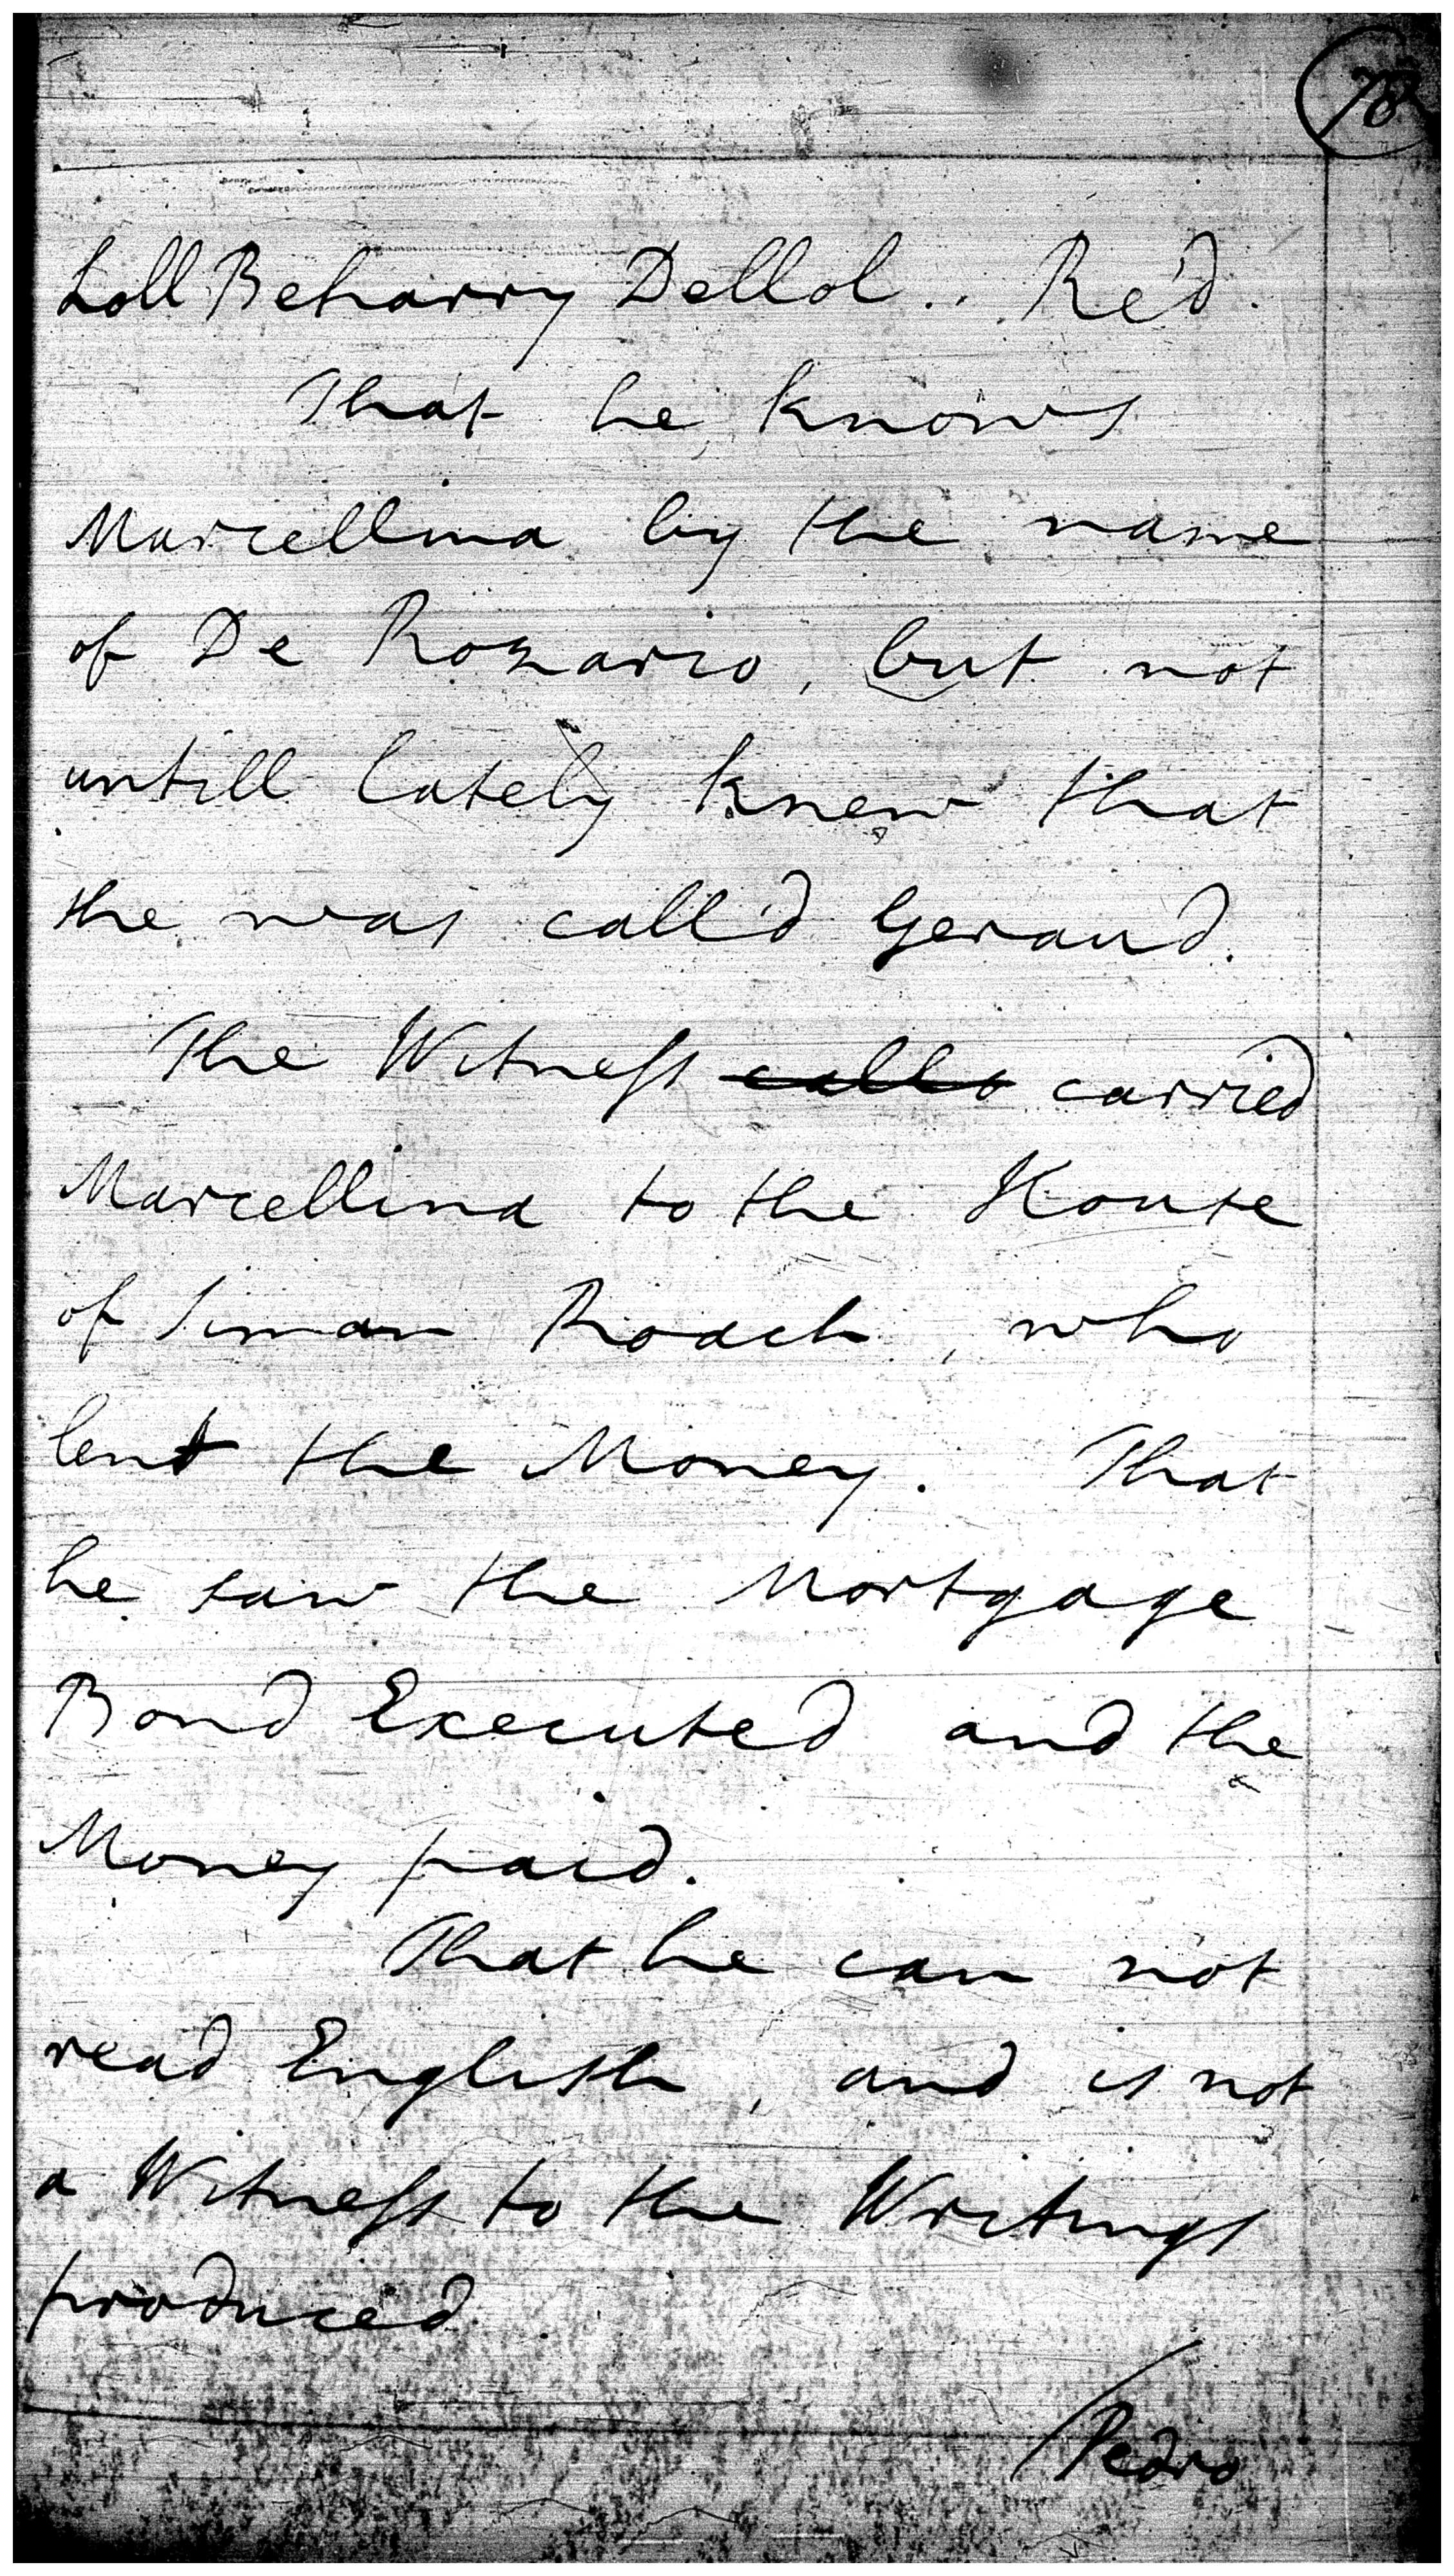 78
Loll Beharry Dellol .. Re'd.
That he knows
Marcellina by the name
of De Rozario, but not
untill lately knew that
she was call'd Geraud.
The Witness calls carried
Marcellina to the House
of Siman Roach, who
lent the Money. That
he saw the Mortgage
Bond Executed and the
Money paid.
That he can not
read English, and is not
a Witness to the Writings
produced.
Pedro